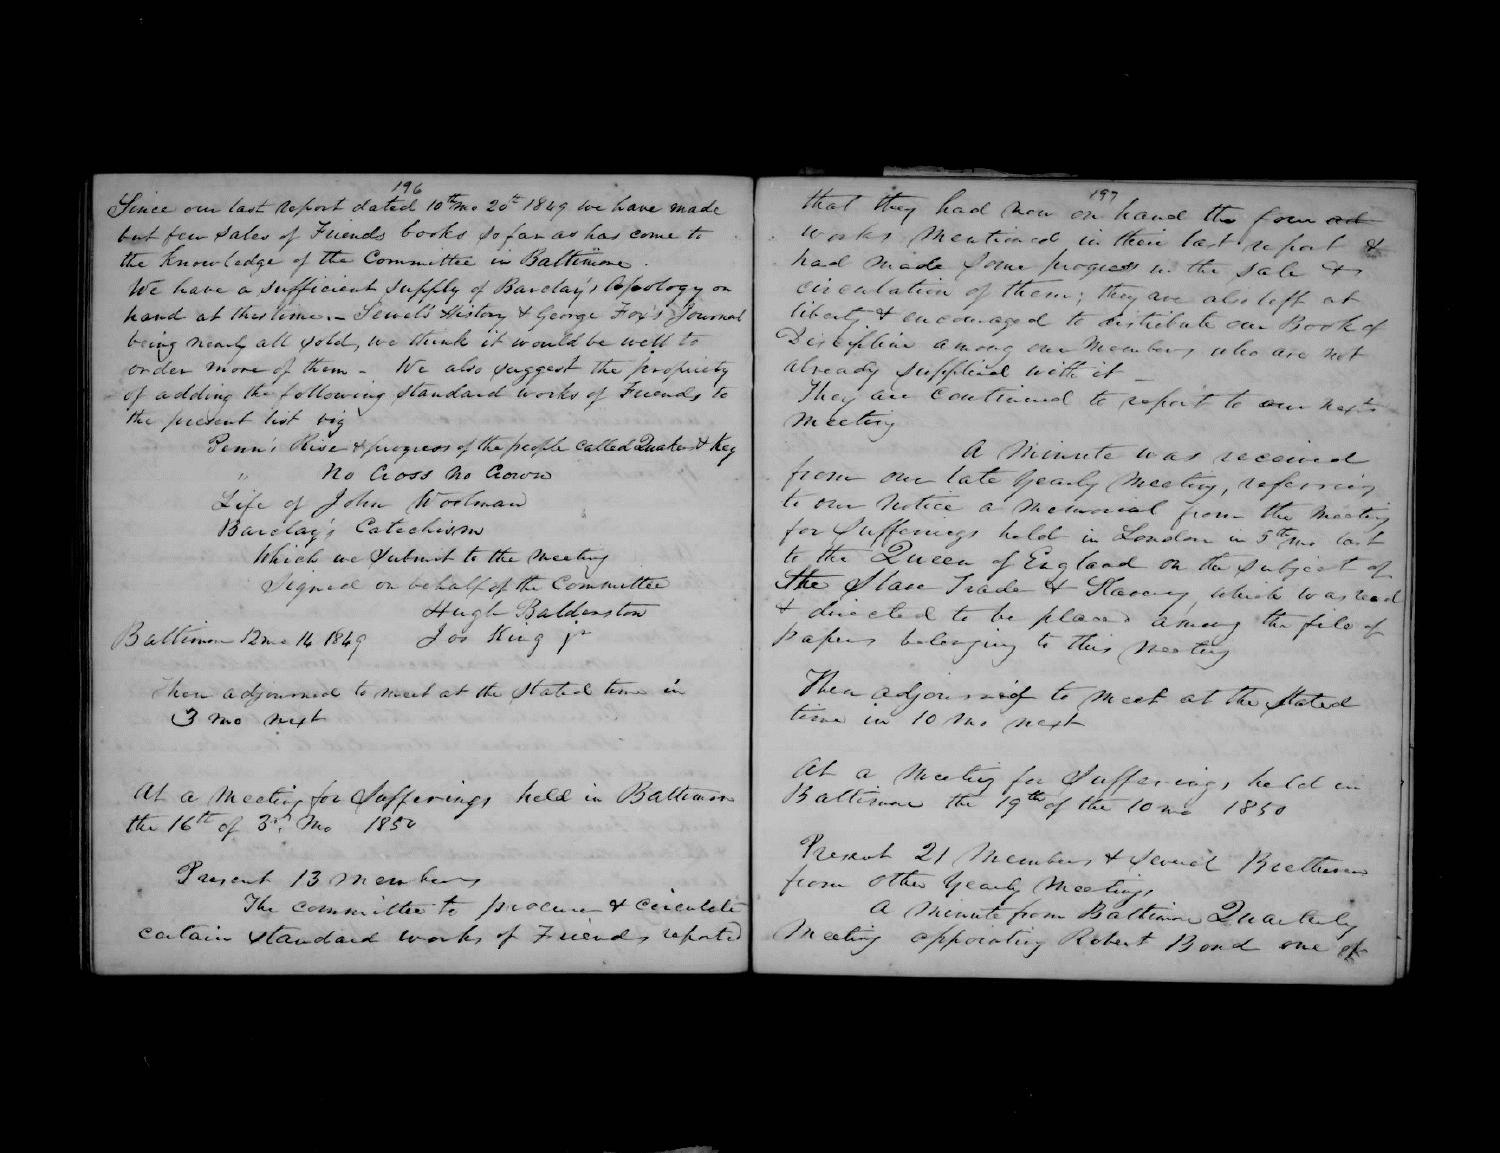 196
Since our last report dated 10th mo 20th 1849 we have made
but few sales of Friends books so far as has come to
the knowledge of the Committee in Baltimore.
We have a sufficient supply of Barclay's Apology on
hand at this time. – Sewel's History & George Fox's Journal
being nearly all sold, we think it would be well to
order more of them – We also suggest the propriety
of adding the following standard works of Friends to
the present list viz
Penn's Rise & progress of the people called Quakers & Key
" No Cross No Crown
Life of John Woolman
Barclay's Catechism
Which we submit to the meeting
Signed on behalf of the Committee
Hugh Balderston
Baltimore 12 mo 14 1849 Jos King jr
Then adjourned to meet at the stated time in
3 mo next
At a Meeting for Sufferings held in Baltimore
the 16th of 3rd Mo 1850
Present 13 members
The committee to procure & circulate
certain standard works of Friends reported
197
that they had now on hand the four
works mentioned in their last report &
had made some progress in the sale &
circulation of them; they are also left at
liberty & encouraged to distribute our Book of
Discipline among our Members who are not
already supplied with it –
They are continued to report to our next
meeting
A Minute was received
from our late Yearly Meeting, referring
to our notice a Memorial from the Meeting
for Sufferings held in London in 5th mo last
to the Queen of England on the subject of
the Slave Trade & Slavery, which was read
& directed to be placed among the file of
papers belonging to this meeting
Then adjourned to meet at the stated
time in 10 mo next
At a Meeting for Sufferings held in
Baltimore the 19th of the 10 mo 1850
Present 21 Members & several Brethren
from other Yearly Meetings
A Minute from Baltimore Quarterly
Meeting appointing Robert Bond one of